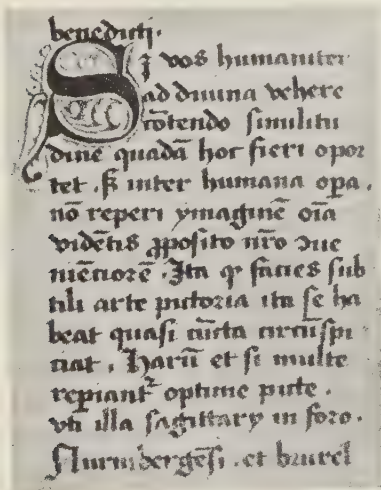 benedicti.
Si vos humaniter
ad divina vehere
cōtendo similitu
dine quadā hoc fieri opor
tet. ſꝫ inter humana opa.
nō reperi ymaginē oīa
videntis ꝓposito nr̄o ↄue
niēciorē. Ita ꝙ facies sub
tili arte pictoria ita se ha
beat quasi cūcta circūspi
ciat. Harū et si multe
repiantʳ optime picte.
vti illa sagittarÿ in foro.
Nurmbergēsi. et bruxel